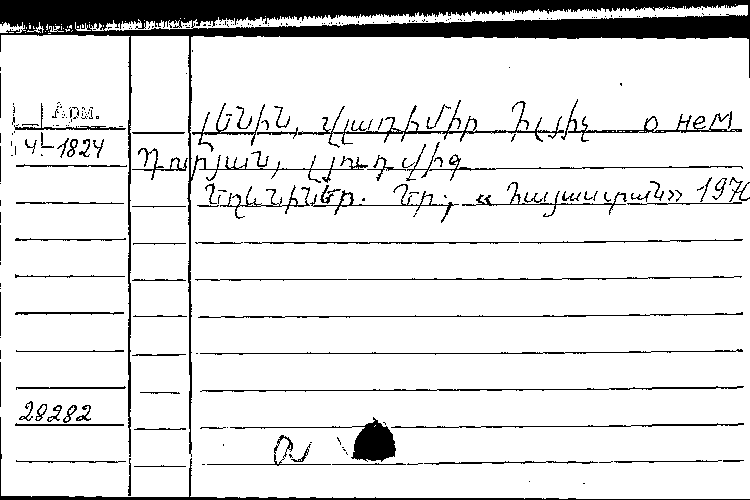 Арм.
4-1824
Լենին, Վլադիմիր Իլյիչ о нем
Դուրյան, Լյուդվիգ
Լենիններ. Եր., «Հայաստան» 1970
28282